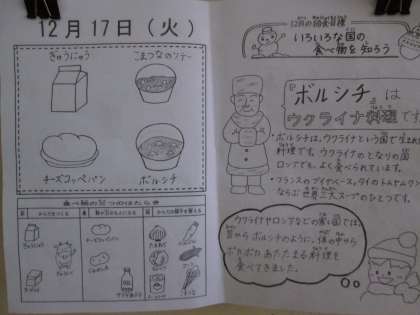 12月17日(火)
ぎゅうにゅう
こまつなのソテー
チーズコッペパン
ボルシチ
食べ物の3つのはたらき
12月の給食目標
いろいろな国の
食べ物を知ろう
『ボルシチ』は
ウクライナ料理です
・ボルシチは、ウクライナという国で生まれ
料理です。ウクライナのとなりの国
ロシアでも、よく食べられています。
・フランスのブイヤベース、タイのトムヤムクン
ならぶ世界三大スープのひとつです。
ウクライナやロシアなどの寒い国では、
昔からボルシチのように、体の中から
ポカポカあたたまる料理を
食べてきました。